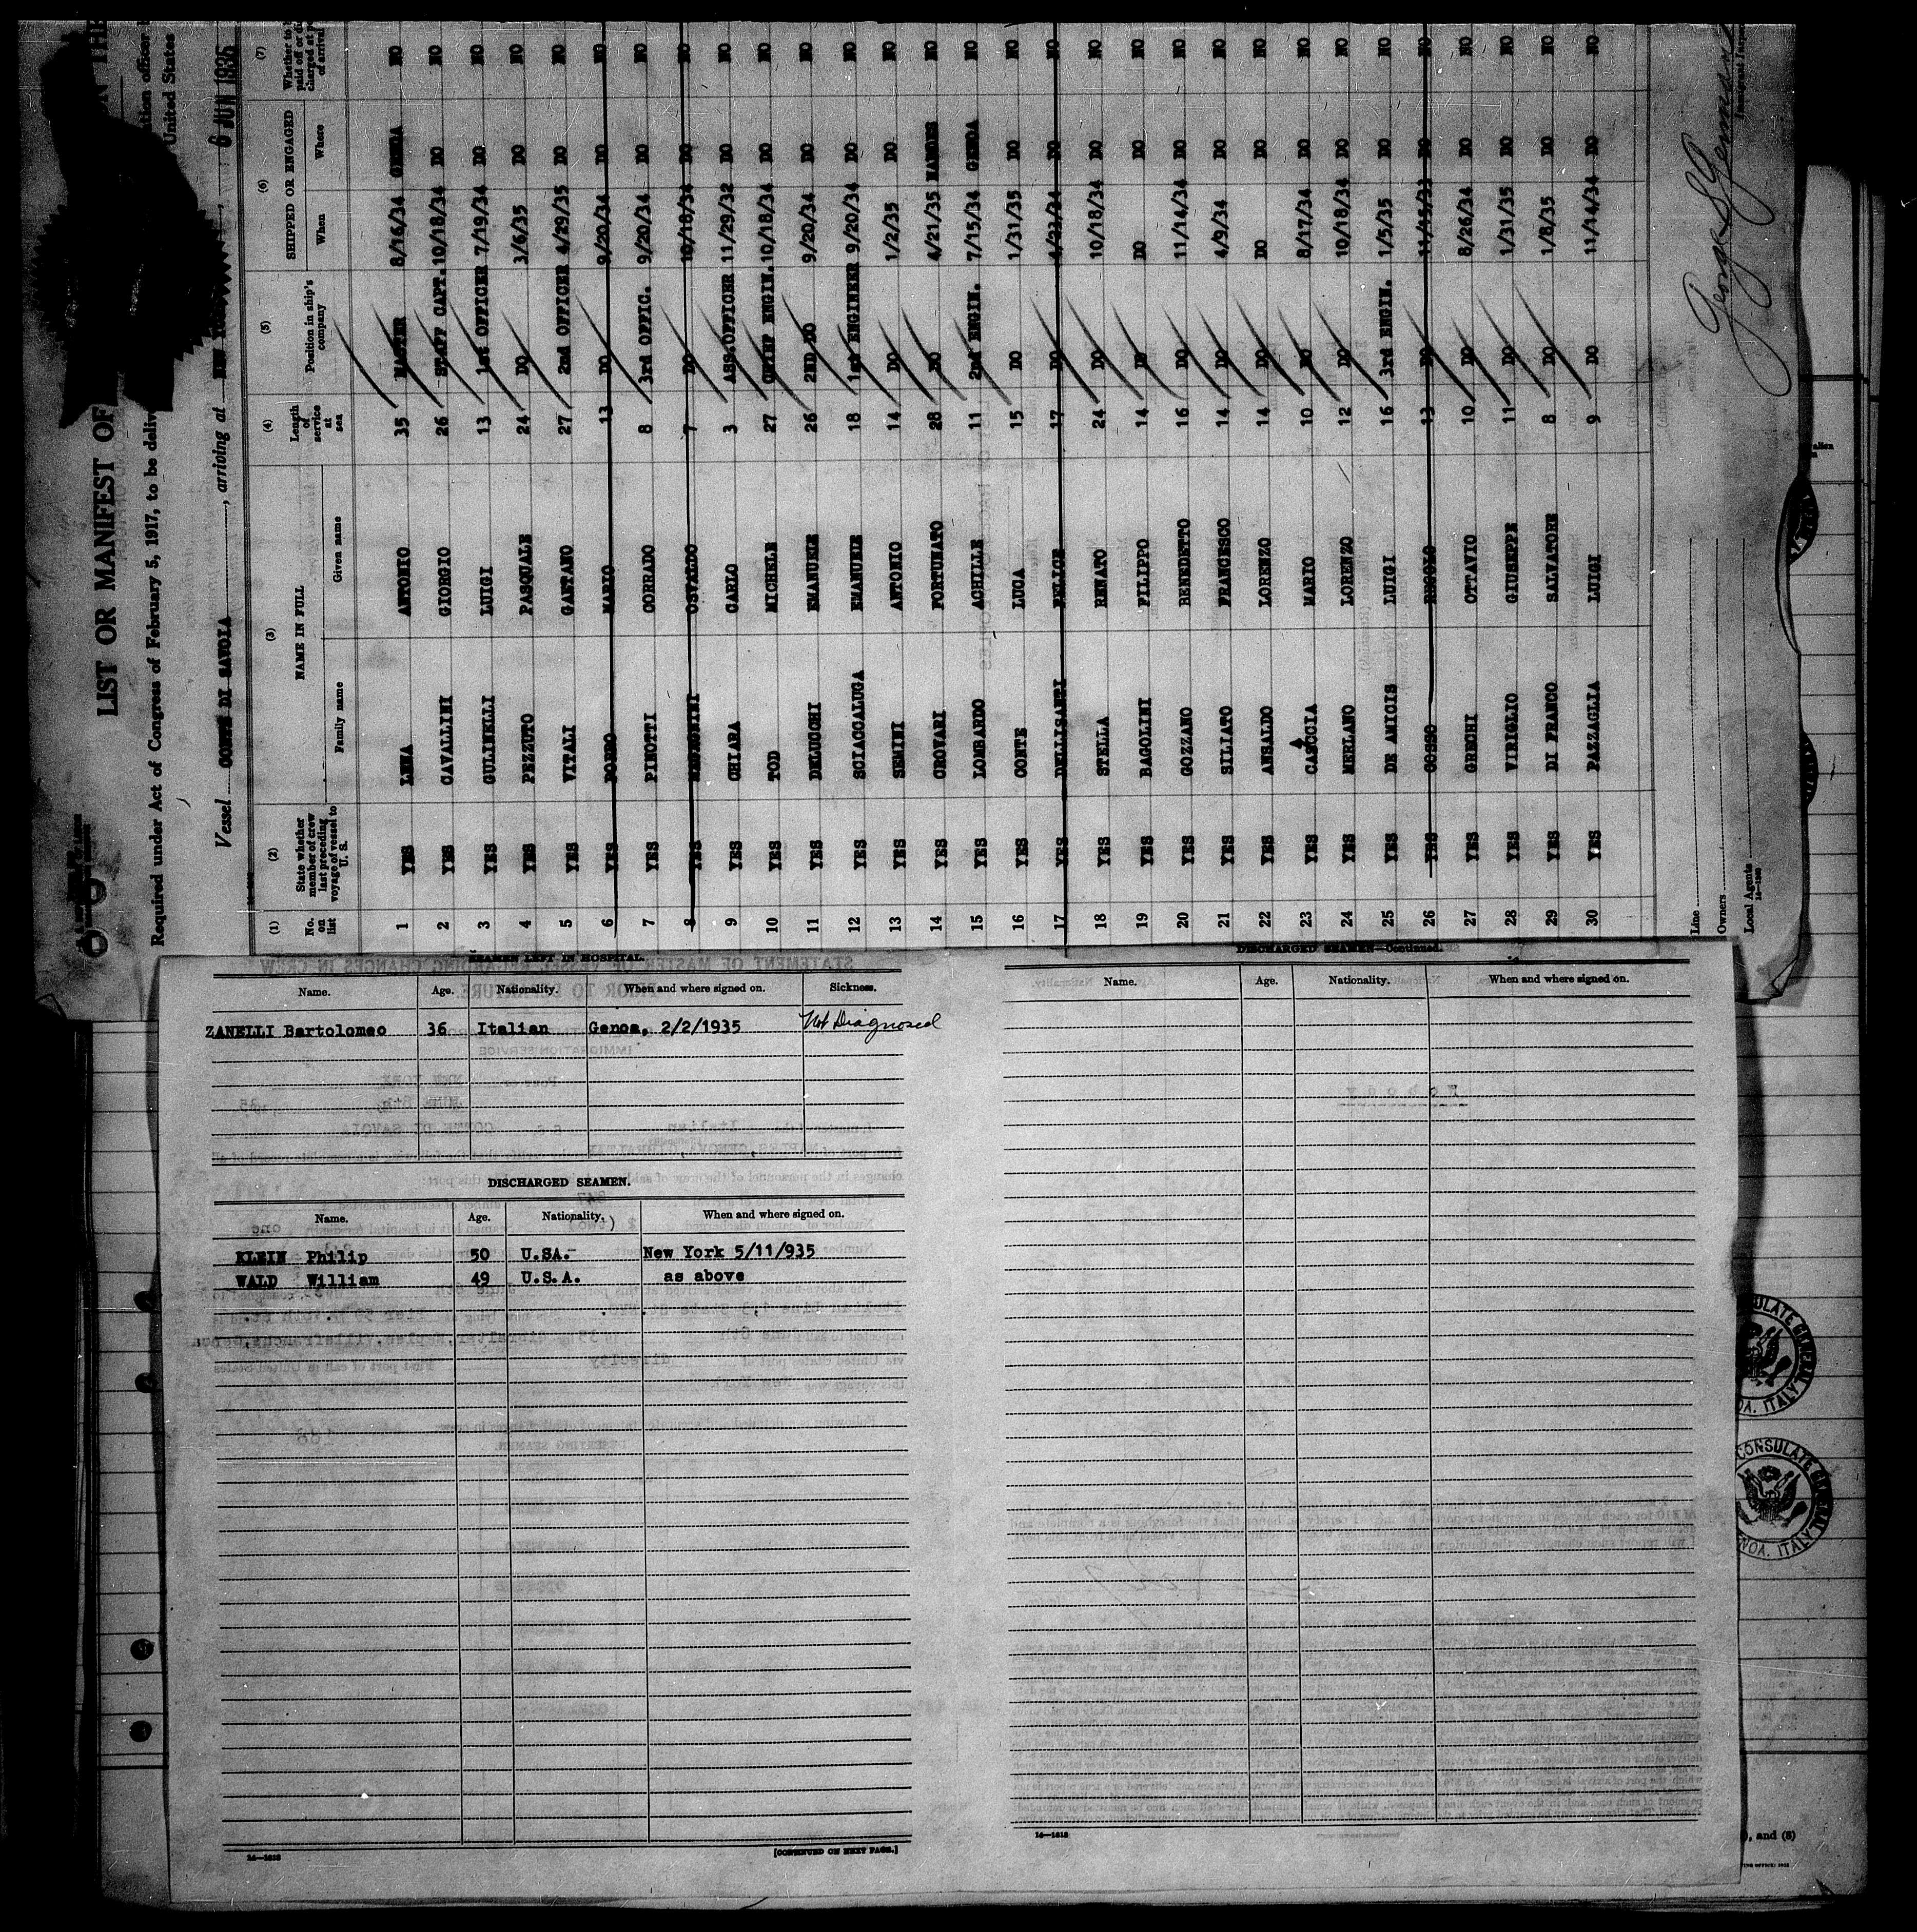 LIST OR MANIFEST OF
ON THE
Required under Act of Congress of February 5, 1917, to be deliv
tion officer
United States
Vessel CONTE DI SAVOIA, arriving at NEW YORK, 6 JUN 1935
(1) (2) (3) (4) (5) (6) (7)
No. on list State whether member of crew last preceding voyage of vessel to U. S. NAME IN FULL Length of service at sea Position in ship's company SHIPPED OR ENGAGED Whether to be paid off or discharged at port of arrival
Family name Given name When Where
1 YES LENA ANTONIO 35 MASTER 8/16/34 GENOA NO
2 YES CAVALLINI GIORGIO 26 STAFF CAPT. 10/18/34 DO NO
3 YES GULINELLI LUIGI 13 1st OFFICER 7/19/34 DO NO
4 YES PEZZUTO PASQUALE 24 DO 3/6/35 DO NO
5 YES VITALI GAETANO 27 2nd OFFICER 4/29/35 DO NO
6 YES MARIO 13 DO 9/20/34 DO NO
7 YES PINOTTI CORRADO 8 3rd OFFIC. 9/20/34 DO NO
8 YES OSVALDO 7 DO 10/18/34 DO NO
9 YES CHIARA CARLO 3 ASS.OFFICER 11/29/32 DO NO
10 YES TOD MICHELE 27 CHIEF ENGIN. 10/18/34 DO NO
11 YES DELUCCHI EMANUELE 26 2ND DO 9/20/34 DO NO
12 YES SCIACCALUGA EMANUELE 18 1st ENGINEER 9/20/34 DO NO
13 YES SEMINI ANTONIO 14 DO 1/2/35 DO NO
14 YES CROVARI FORTUNATO 28 DO 4/21/35 NO
15 YES LOMBARDO ACHILLE 11 2nd ENGIN. 7/15/34 GENOA NO
16 YES CONTE LUCA 15 DO 1/31/35 DO NO
17 YES DELLISANTI FELICE 17 DO 4/23/34 DO NO
18 YES STELLA RENATO 24 DO 10/18/34 DO NO
19 YES BAGOLINI FILIPPO 14 DO DO DO NO
20 YES GOZZANO BENEDETTO 16 DO 11/14/34 DO NO
21 YES SILIATO FRANCESCO 14 DO 4/9/34 DO NO
22 YES ANSALDO LORENZO 14 DO DO DO NO
23 YES CASCCIA MARIO 10 DO 8/17/34 DO NO
24 YES MERLANO LORENZO 12 DO 10/18/34 DO NO
25 YES DE AMICIS LUIGI 16 3rd ENGIN. 1/5/35 DO NO
26 YES COSSO REGOLO 13 DO 11/15/33 DO NO
27 YES GRECHI OTTAVIO 10 DO 8/26/34 DO NO
28 YES VIRIGLIO GIUSEPPE 11 DO 1/31/35 DO NO
29 YES DI FRANCO SALVATORE 8 DO 1/8/35 DO NO
30 YES PAZZAGLIA LUIGI 9 DO 11/14/34 DO NO
Line
Owners
Local Agents
SEAMEN LEFT IN HOSPITAL.
Name. Age. Nationality. When and where signed on. Sickness.
ZANELLI Bartolomeo 36 Italian Genoa, 2/2/1935 Not Diagnosed
DISCHARGED SEAMEN.
Name. Age. Nationality. When and where signed on.
KLEIN Philip 50 U.SA.- New York 5/11/935
WALD William 49 U.S.A. as above
14—1613
[CONTINUED ON NEXT PAGE.]
DISCHARGED SEAMEN—Continued.
Name. Age. Nationality. When and where signed on.
14—1613
CONSULATE GENERAL
GENOA, ITALY
, and (8)